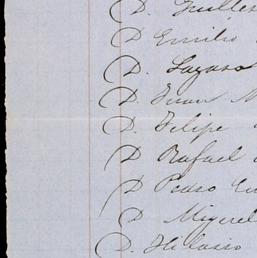 D.
D Emilio
D. Lazaro
D. Juan M
D. Felipe
D Rafael
D Pedro
D Miguel
D. Hilario